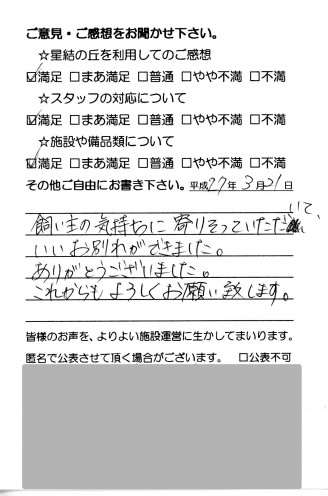 ご意見・ご感想をお聞かせ下さい。
☆星結の丘を利用してのご感想
☑満足 □まあ満足 □普通 □やや不満 □不満
☆スタッフの対応について
☑満足 □まあ満足 □普通 □やや不満 □不満
☆施設や備品類について
☑満足 □まあ満足 □普通 □やや不満 □不満
その他ご自由にお書き下さい。平成27年3月21日
飼い主の気持ちに寄りそっていただいて、
いいお別れができました。
ありがとうございました。
これからもよろしくお願い致します。
皆様のお声を、よりよい施設運営に生かしてまいります。
匿名で公表させて頂く場合がございます。 □公表不可